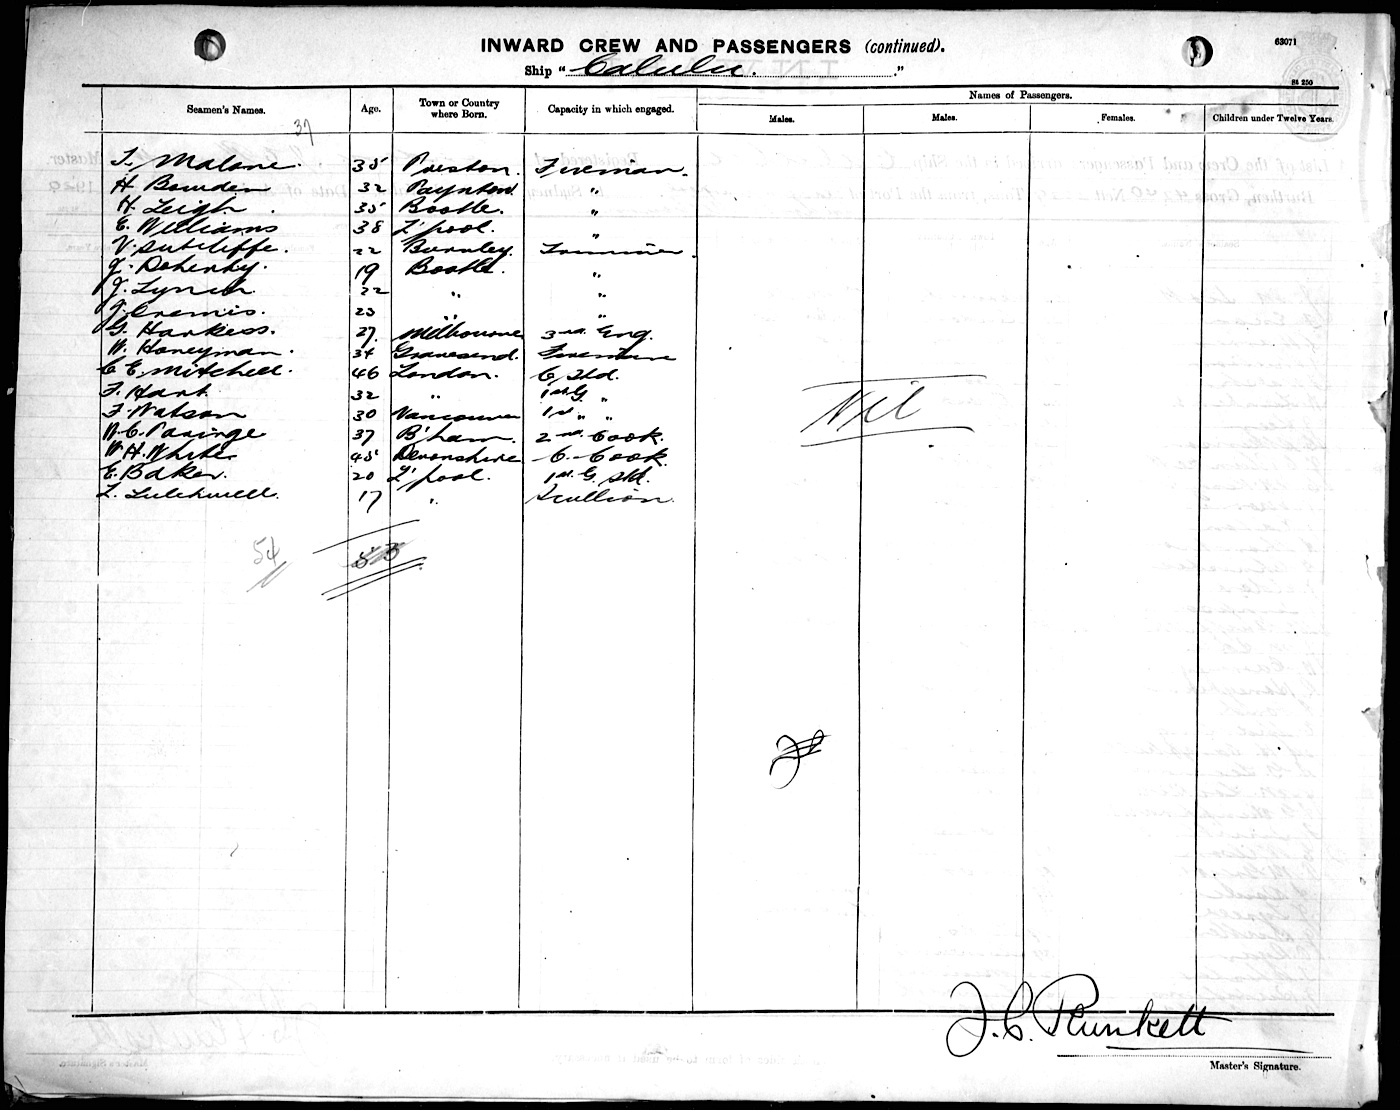 INWARD CREW AND PASSENGERS (continued).
63071
Ship "Calulu."
St 250
Seamen's Names. Age. Town or Country where Born. Capacity in which engaged. Names of Passengers.
Males. Males. Females. Children under Twelve Years.
37
T. Malone. 35 Preston. Fireman.
H Bowden 32 Poynton "
H. Leigh. 35 Bootle. "
E. Williams 38 L'pool. "
V. Sutcliffe. 22 Burnley. Trimmer.
J. Doherty. 19 Bootle. "
J. Lynch. 22 " "
J. Cremis. 23 " "
G. Harkess. 27. Melbourne 3rd Eng.
W. Honeyman. 34 Gravesend.
C E. Mitchell. 46 London. C. Std.
F. Hart. 32 " 1st G "
F. Watson 30 Vancouver 1st " "
W. C. 37 B'ham. 2nd Cook.
W. H. White 45 Devonshire C. Cook.
E. Baker. 20 L'pool. 1st G Std.
L. 17 " Scullion.
Nil
54 53
J. C. Plunkett
Master's Signature.